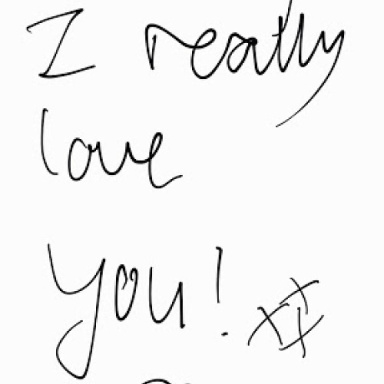 I really
love
you! xxx